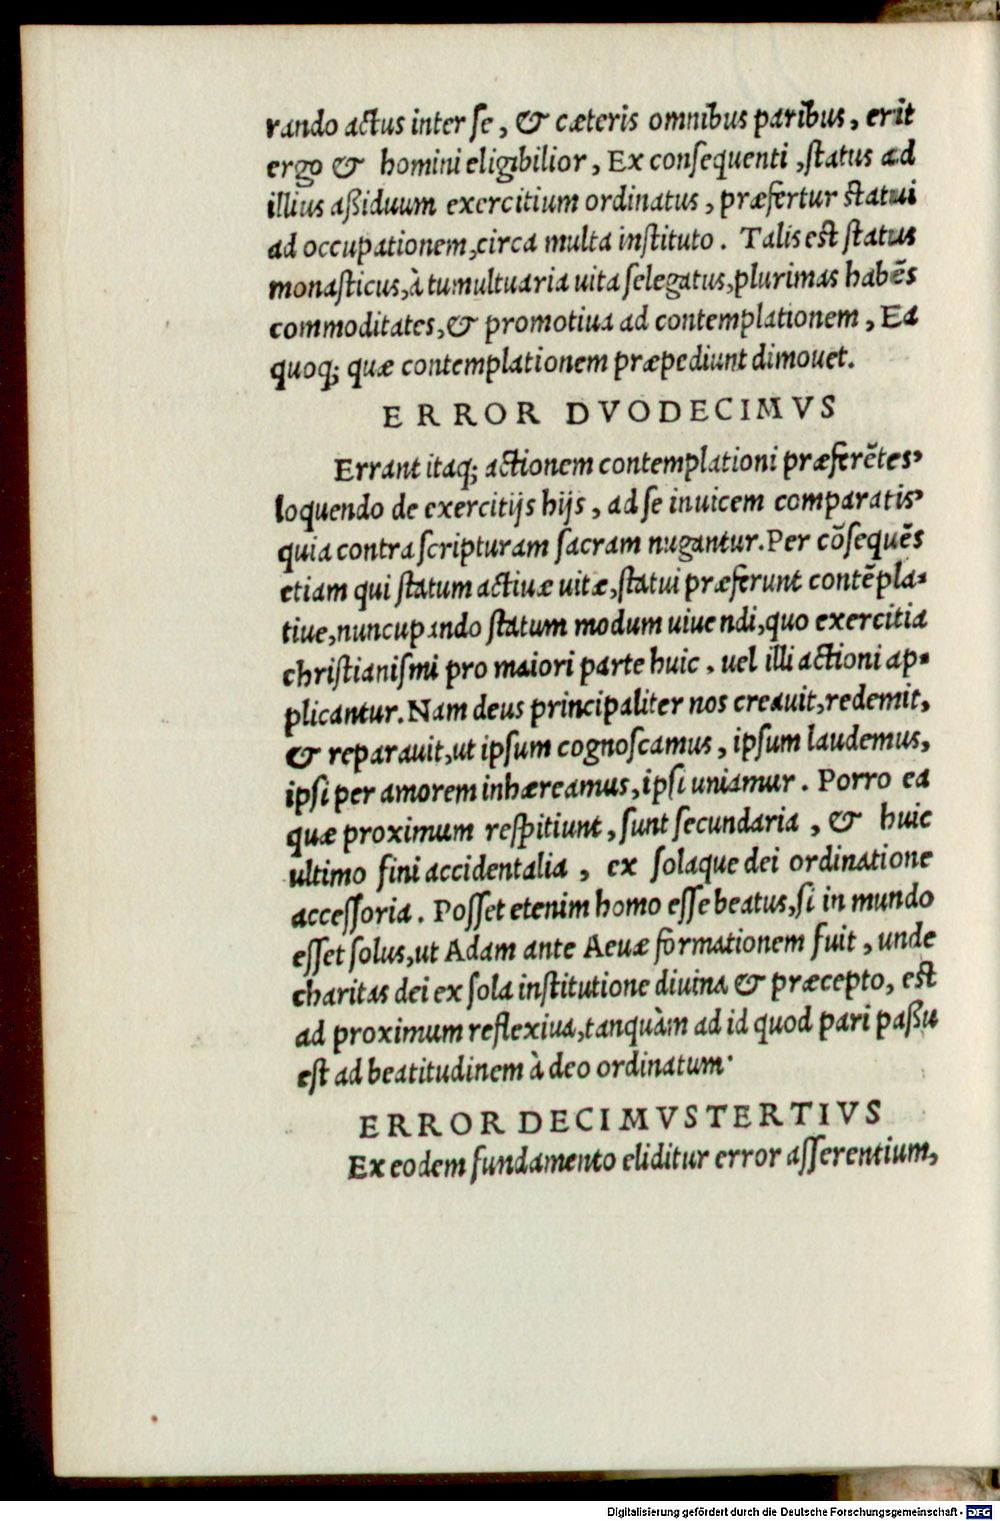 rando actus inter se, & cæteris omnibus paribus, erit
ergo & homini eligibilior, Ex consequenti, status ad
illius aßiduum exercitium ordinatus, præfertur statui
ad occupationem, circa multa instituto. Talis est status
monasticus, à tumultuaria uita selegatus, plurimas habẽs
commoditates, & promotiua ad contemplationem, Ea
quoq; quæ contemplationem præpediunt dimouet.
ERROR DVODECIMVS
Errant itaq; actionem contemplationi præferẽtes,
loquendo de exercitijs hijs, ad se inuicem comparatis,
quia contra scripturam sacram nugantur. Per cõsequẽs
etiam qui statum actiuæ uitæ, statui præferunt contẽpla-
tiue, nuncupando statum modum uiuendi, quo exercitia
christianismi pro maiori parte huic, uel illi actioni ap-
plicantur. Nam deus principaliter nos creauit, redemit,
& reparauit, ut ipsum cognoscamus, ipsum laudemus,
ipsi per amorem inhæreamus, ipsi uniamur. Porro ea
quæ proximum respitiunt, sunt secundaria, & huic
ultimo fini accidentalia, ex solaque dei ordinatione
accessoria. Posset etenim homo esse beatus, si in mundo
esset solus, ut Adam ante Aeuæ formationem fuit, unde
charitas dei ex sola institutione diuina & præcepto, est
ad proximum reflexiua, tanquàm ad id quod pari paßu
est ad beatitudinem à deo ordinatum.
ERROR DECIMVSTERTIVS
Ex eodem fundamento eliditur error asserentium,
Digitalisierung gefördert durch die Deutsche Forschungsgemeinschaft - DFG